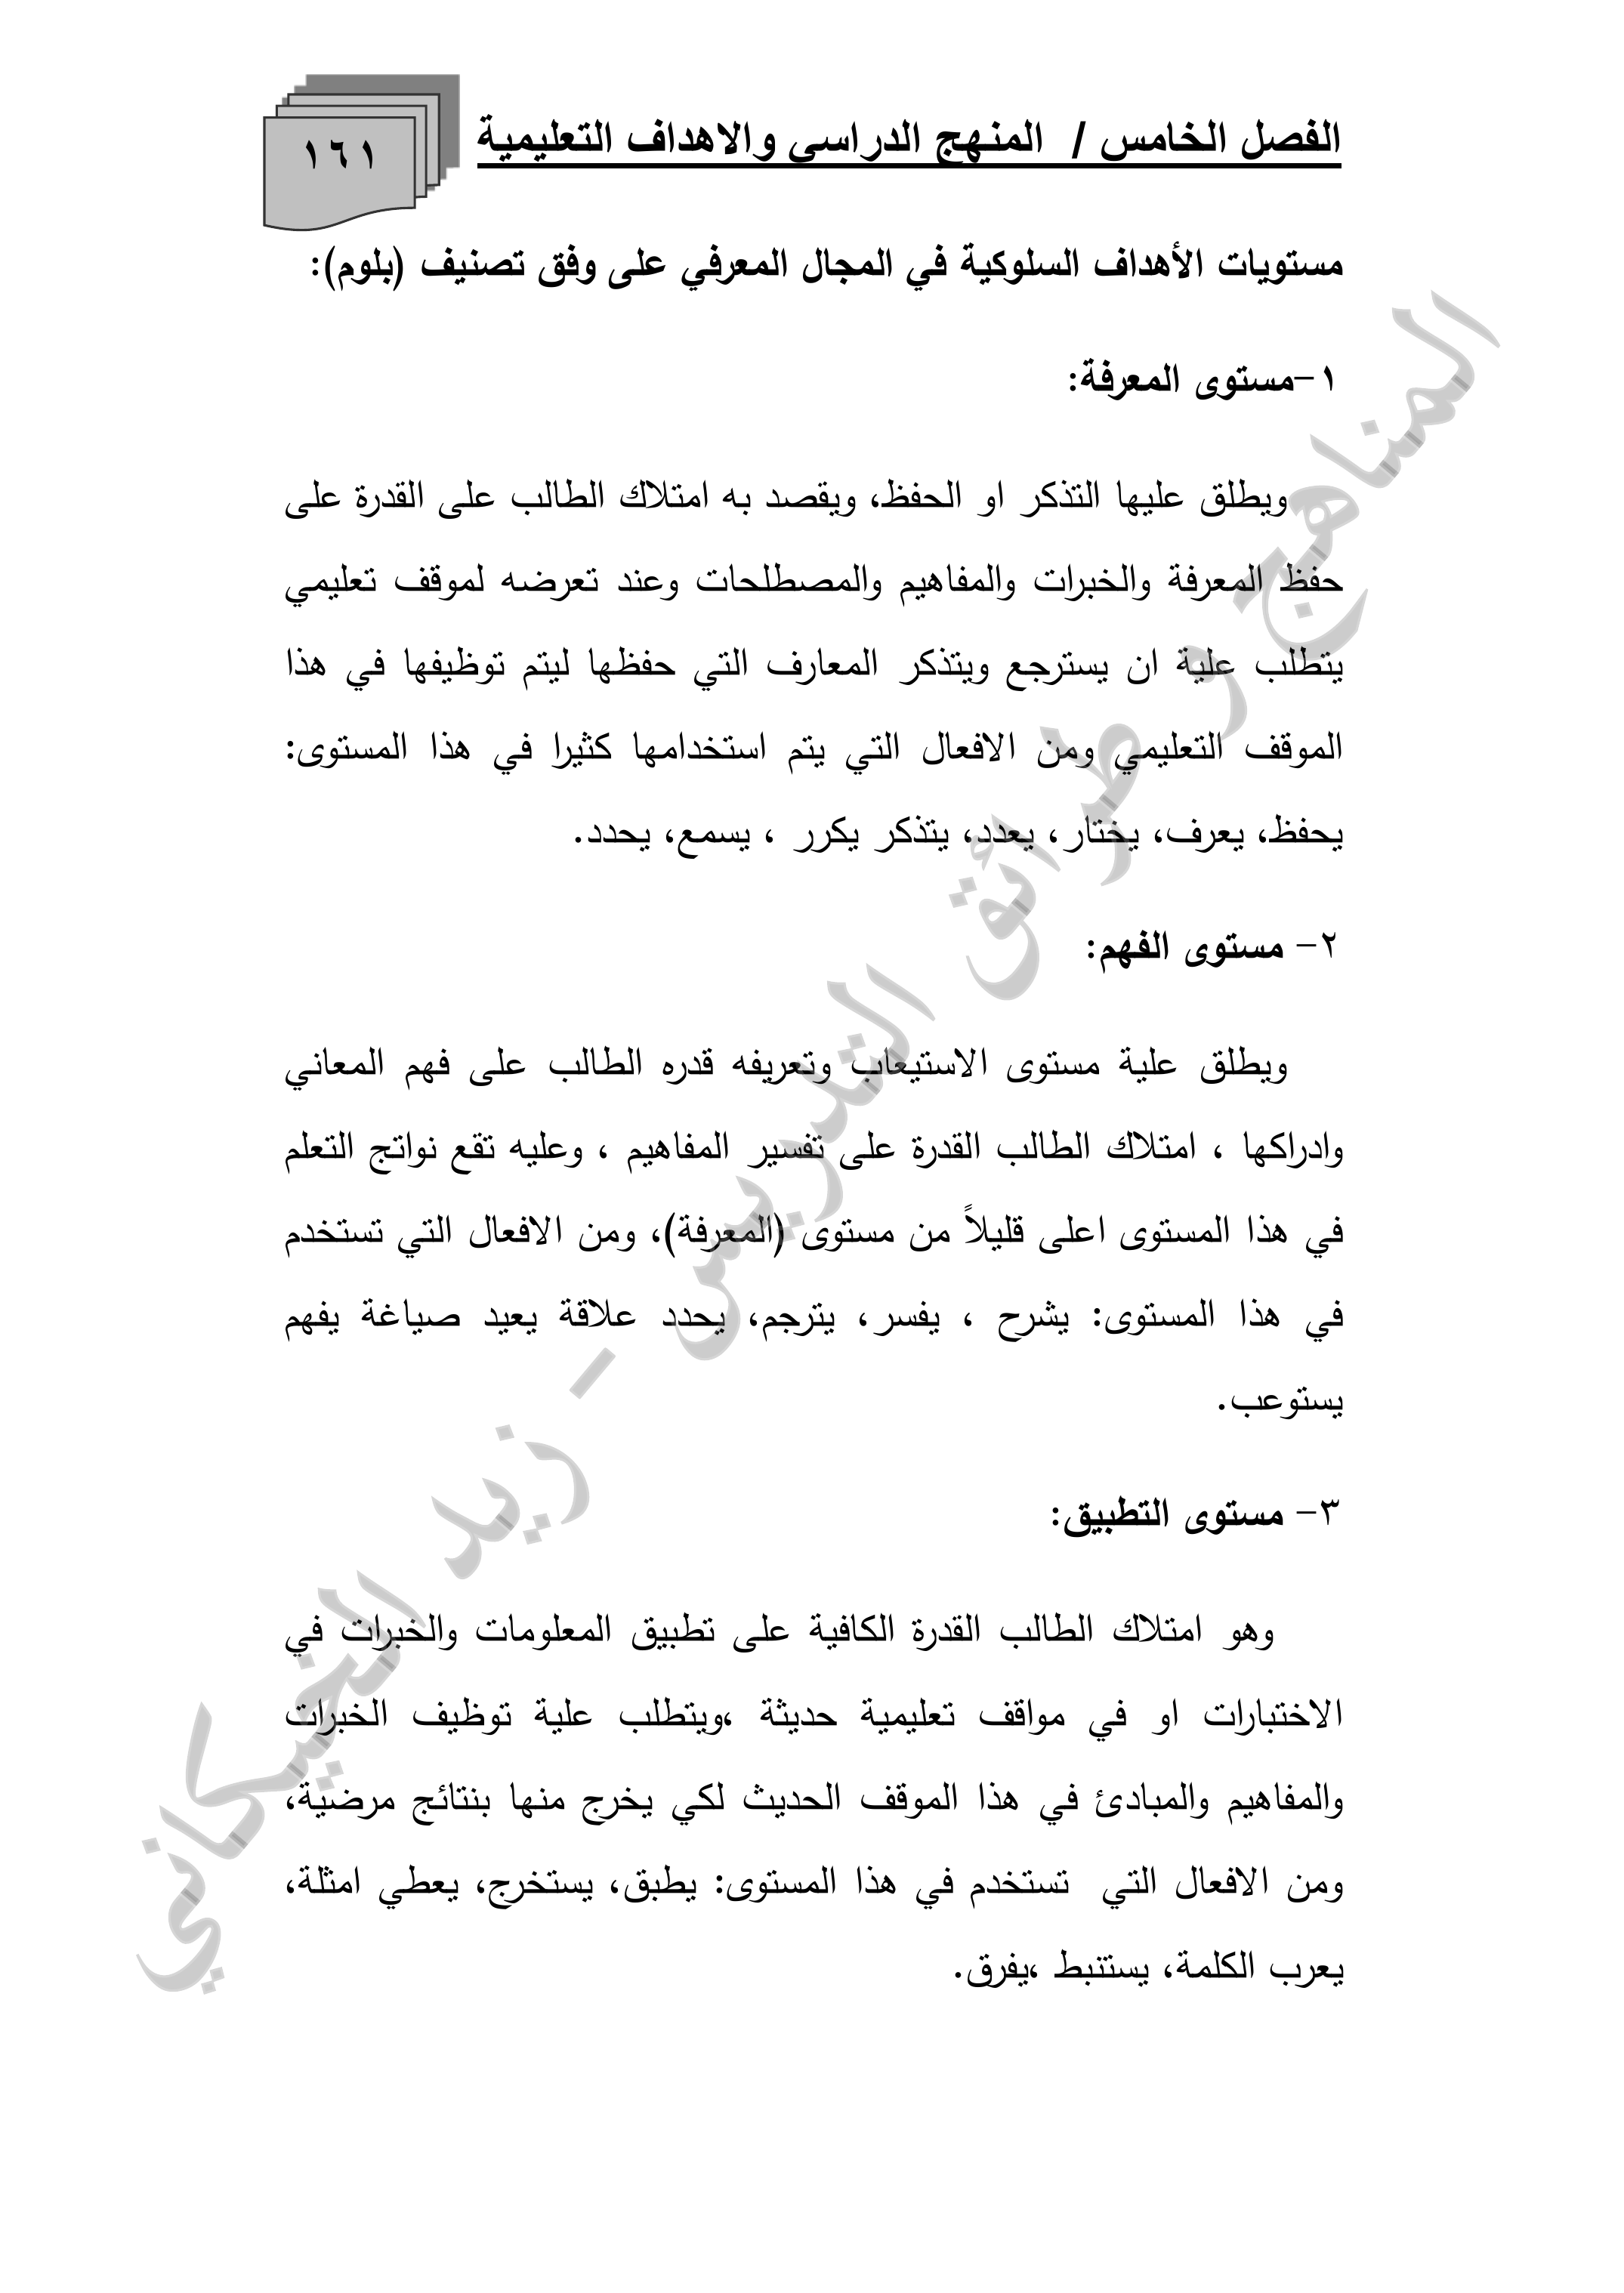 الفصل الخامس / المنهج الدراسي والاهداف التعليمية
١٦١
مستويات الأهداف السلوكية في المجال المعرفي على وفق تصنيف (بلوم):
١-مستوى المعرفة:
ويطلق عليها التذكر او الحفظ، ويقصد به امتلاك الطالب على القدرة على
حفظ المعرفة والخبرات والمفاهيم والمصطلحات وعند تعرضه لموقف تعليمي
يتطلب علية ان يسترجع ويتذكر المعارف التي حفظها ليتم توظيفها في هذا
الموقف التعليمي ومن الافعال التي يتم استخدامها كثيرا في هذا المستوى:
يحفظ، يعرف، يختار، يعدد، يتذكر يكرر ، يسمع، يحدد.
٢- مستوى الفهم:
ويطلق علية مستوى الاستيعاب وتعريفه قدره الطالب على فهم المعاني
وادراكها ، امتلاك الطالب القدرة على تفسير المفاهيم ، وعليه تقع نواتج التعلم
في هذا المستوى اعلى قليلاً من مستوى (المعرفة)، ومن الافعال التي تستخدم
في هذا المستوى: يشرح ، يفسر، يترجم، يحدد علاقة يعيد صياغة يفهم
يستوعب.
٣- مستوى التطبيق:
وهو امتلاك الطالب القدرة الكافية على تطبيق المعلومات والخبرات في
الاختبارات او في مواقف تعليمية حديثة ،ويتطلب علية توظيف الخبرات
والمفاهيم والمبادئ في هذا الموقف الحديث لكي يخرج منها بنتائج مرضية،
ومن الافعال التي تستخدم في هذا المستوى: يطبق، يستخرج، يعطي امثلة،
يعرب الكلمة، يستنبط ،يفرق.
المناهج و طرائق التدريس - زيد الخيكاني